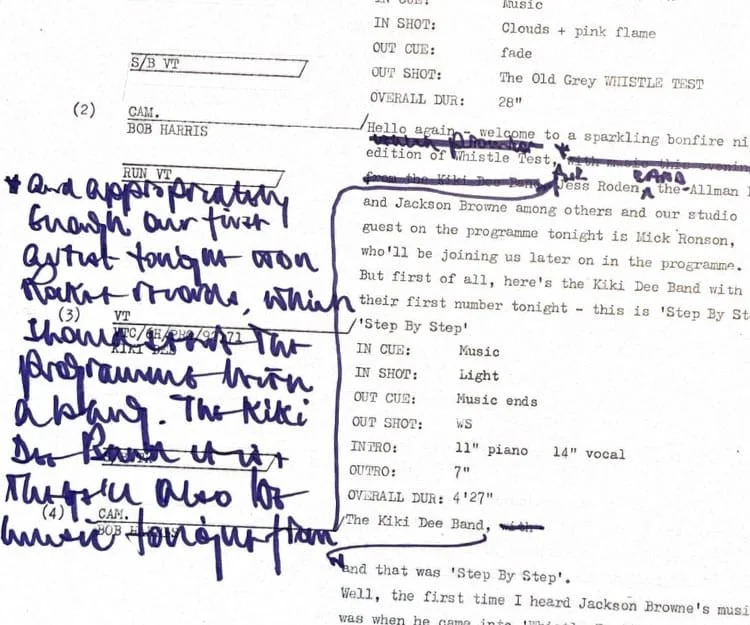 IN CUE: Music
IN SHOT: Clouds + pink flame
OUT CUE: fade
S/B VT
OUT SHOT: The Old Grey WHISTLE TEST
OVERALL DUR: 28"
(2) CAM.
BOB HARRIS
Hello again - welcome to a sparkling bonfire ni
edition of Whistle Test, with music this evening
RUN VT
from the Kiki Dee Band, Jess Roden BAND, the Allman
and Jackson Browne among others and our studio
guest on the programme tonight is Mick Ronson,
who'll be joining us later on in the programme.
But first of all, here's the Kiki Dee Band with
their first number tonight - this is 'Step By St
* And appropriately
enough our first
artist tonight is on
Rocket Records, which
should start the
programme with
a bang. The Kiki
Dee Band it is
also be
music tonight from
(3) VT
KIKI DEE
'Step By Step'
IN CUE: Music
IN SHOT: Light
OUT CUE: Music ends
OUT SHOT: WS
INTRO: 11" piano 14" vocal
OUTRO: 7"
OVERALL DUR: 4'27"
(4) CAM.
BOB HARRIS
The Kiki Dee Band, with
and that was 'Step By Step'.
Well, the first time I heard Jackson Browne's musi
was when he came into